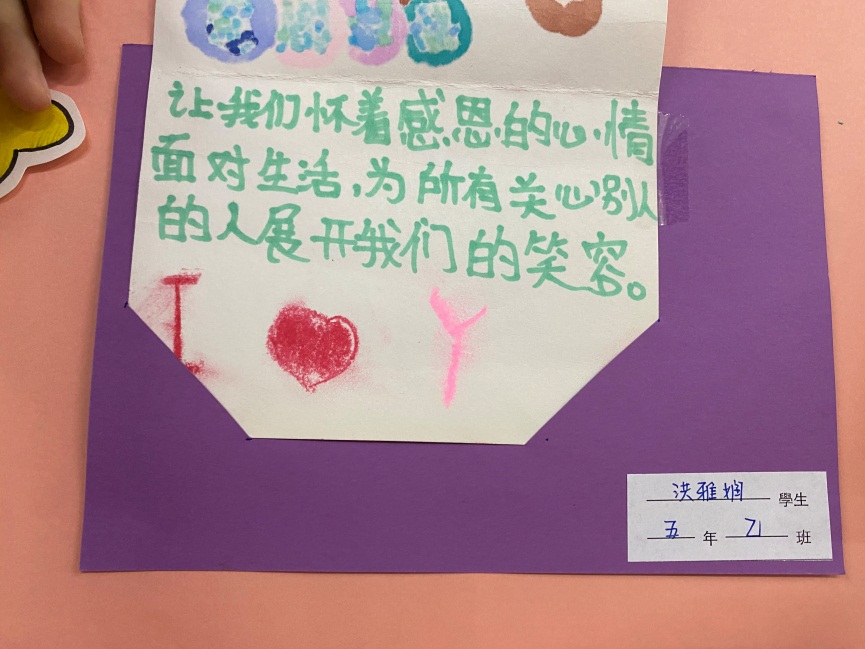 让我们怀着感恩的心情
面对生活,为所有关心别人
的人展开我们的笑容。
I ❤ Y
洪雅娴 學生
五 年 乙 班